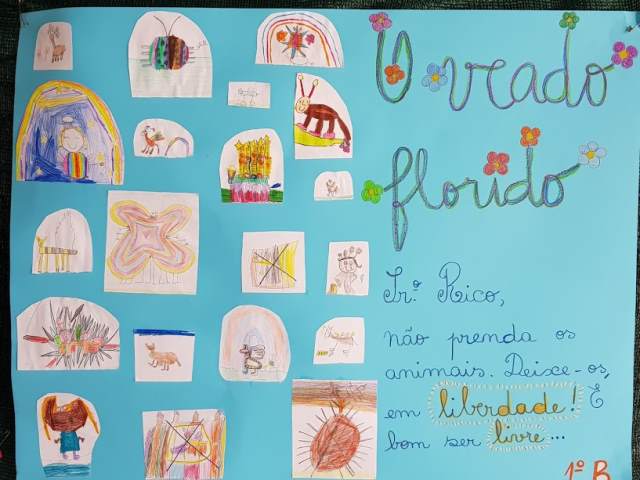 O veado
florido
Sr.º Rico,
não prenda os
animais. Deixe-os,
em liberdade! É
bom ser livre...
1º B